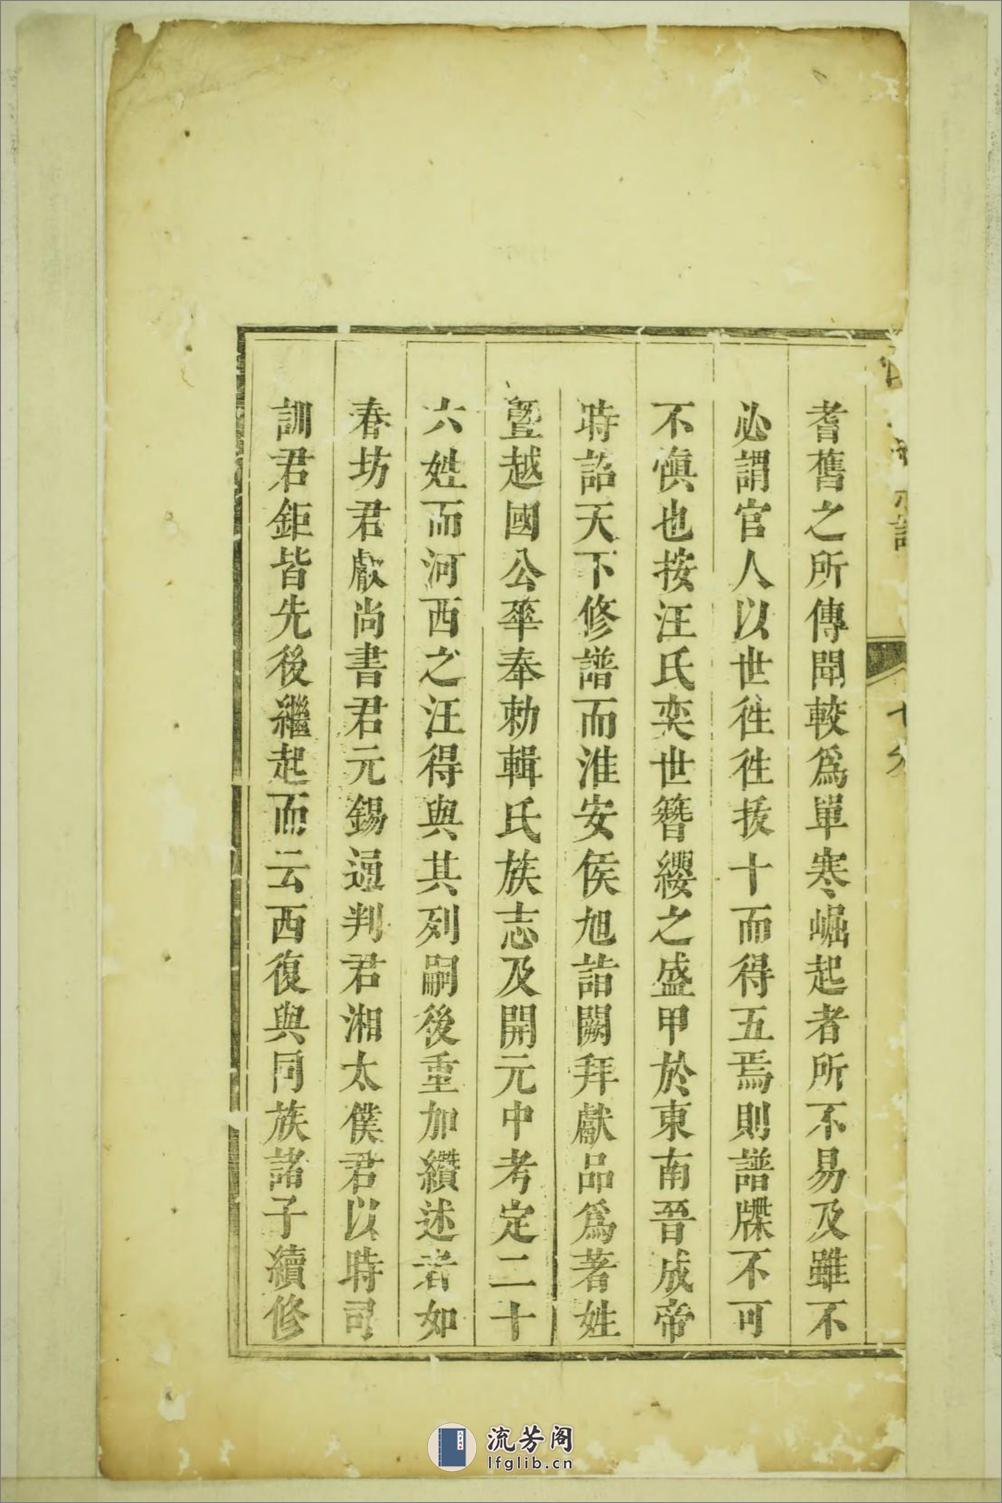 耆舊之所傳聞較爲單寒崛起者所不易及雖不
必謂官人以世徃徃拔十而得五焉則譜牒不可
不愼也按汪氏奕世簪纓之盛甲於東南晉成帝
時詔天下修譜而淮安侯旭詣闕拜獻品爲著姓
曁越國公華奉勅輯氏族志及開元中考定二十
六姓而河西之汪得與其列嗣後重加纘述者如
春坊君獻尚書君元錫通判君湘太僕君以時司
訓君鉅皆先後繼起而云西復與同族諸子續修
流芳阁
lfglib.cn